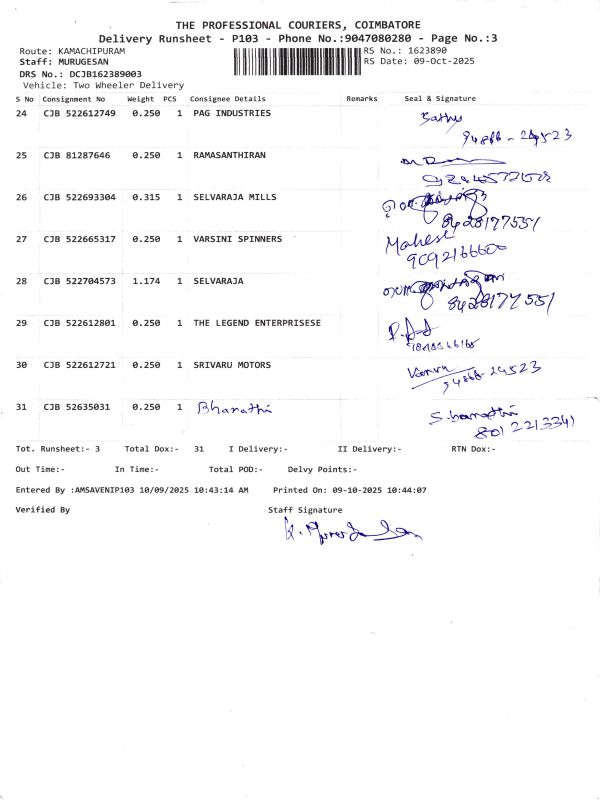 THE PROFESSIONAL COURIERS, COIMBATORE
Delivery Runsheet - P103 - Phone No.:9047080280 - Page No.:3
Route: KAMACHIPURAM RS No.: 1623890
Staff: MURUGESAN RS Date: 09-Oct-2025
DRS No.: DCJB162389003
Vehicle: Two Wheeler Delivery
S No Consignment No Weight PCS Consignee Details Remarks Seal & Signature
24 CJB 522612749 0.250 1 PAG INDUSTRIES
25 CJB 81287646 0.250 1 RAMASANTHIRAN
26 CJB 522693304 0.315 1 SELVARAJA MILLS
8428177551
27 CJB 522665317 0.250 1 VARSINI SPINNERS Mahesh
9092166600
28 CJB 522704573 1.174 1 SELVARAJA
8428177551
29 CJB 522612801 0.250 1 THE LEGEND ENTERPRISESE
30 CJB 522612721 0.250 1 SRIVARU MOTORS
31 CJB 52635031 0.250 1 Bharathi S.bharathi
8012213341
Tot. Runsheet:- 3 Total Dox:- 31 I Delivery:- II Delivery:- RTN Dox:-
Out Time:- In Time:- Total POD:- Delvy Points:-
Entered By :AMSAVENIP103 10/09/2025 10:43:14 AM Printed On: 09-10-2025 10:44:07
Verified By Staff Signature